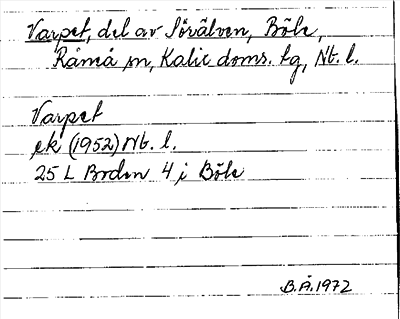 Varpet, del av Sörälven, Böle,
Råneå sn, Kalix doms. tg, Nb. l.
Varpet
ek (1952) Nb. l.
25 L Boden 4 i Böle
B.Å. 1972